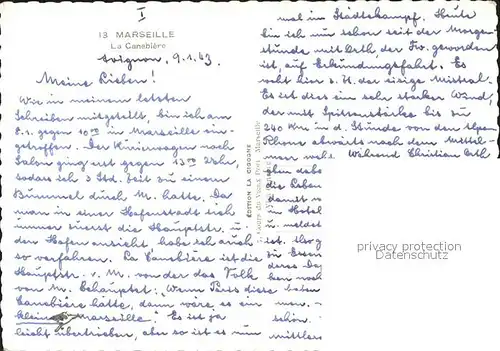 I
13 MARSEILLE
La Canebière
Avignon, 9.1.43.
Meine Lieben!
Wie in meinem letzten
Schreiben mitgeteilt, bin ich am
8.1. gegen 10 in Marseille ein-
getroffen. Der Kurierwagen nach
Salon ging erst gegen 13 Uhr,
sodass ich 3 Std. Zeit zu einem
Bummel durch M. hatte. Da
man in einer Hafenstadt sich
immer zuerst die Hauptstr. u.
den Hafen ansieht, habe ich auch
so verfahren. La Canebière ist die
Hauptstr. v. M. von der das Volk
von M. behauptet: "Wenn Paris diese
Canebière hätte, dann wäre es ein
kleines Marseille." Es ist ja
leicht übertrieben, aber so ist es nun
EDITION LA CIGOGNE
Cours du Vieux Port Marseille
mal im Städtekampf. Heute
bin ich nun schon seit der Morgen-
stunde mit Orth der
ist, auf Erkundungsfahrt. Es
weht hier s. St. der eisige Mistral.
Es ist dies ein sehr starker Wind,
der mit Spitzenstärke bis zu
240 Km in d. Stunde von den Alpen
Rhone abwärts nach dem Mittel-
meer weht. Während Christian Orth
dabei
die
damit
in Hotel
u. meldet
ist.
zu Essen
deres
ben noch
baten
men.
schön.
mittler
privacy protection
Datenschutz